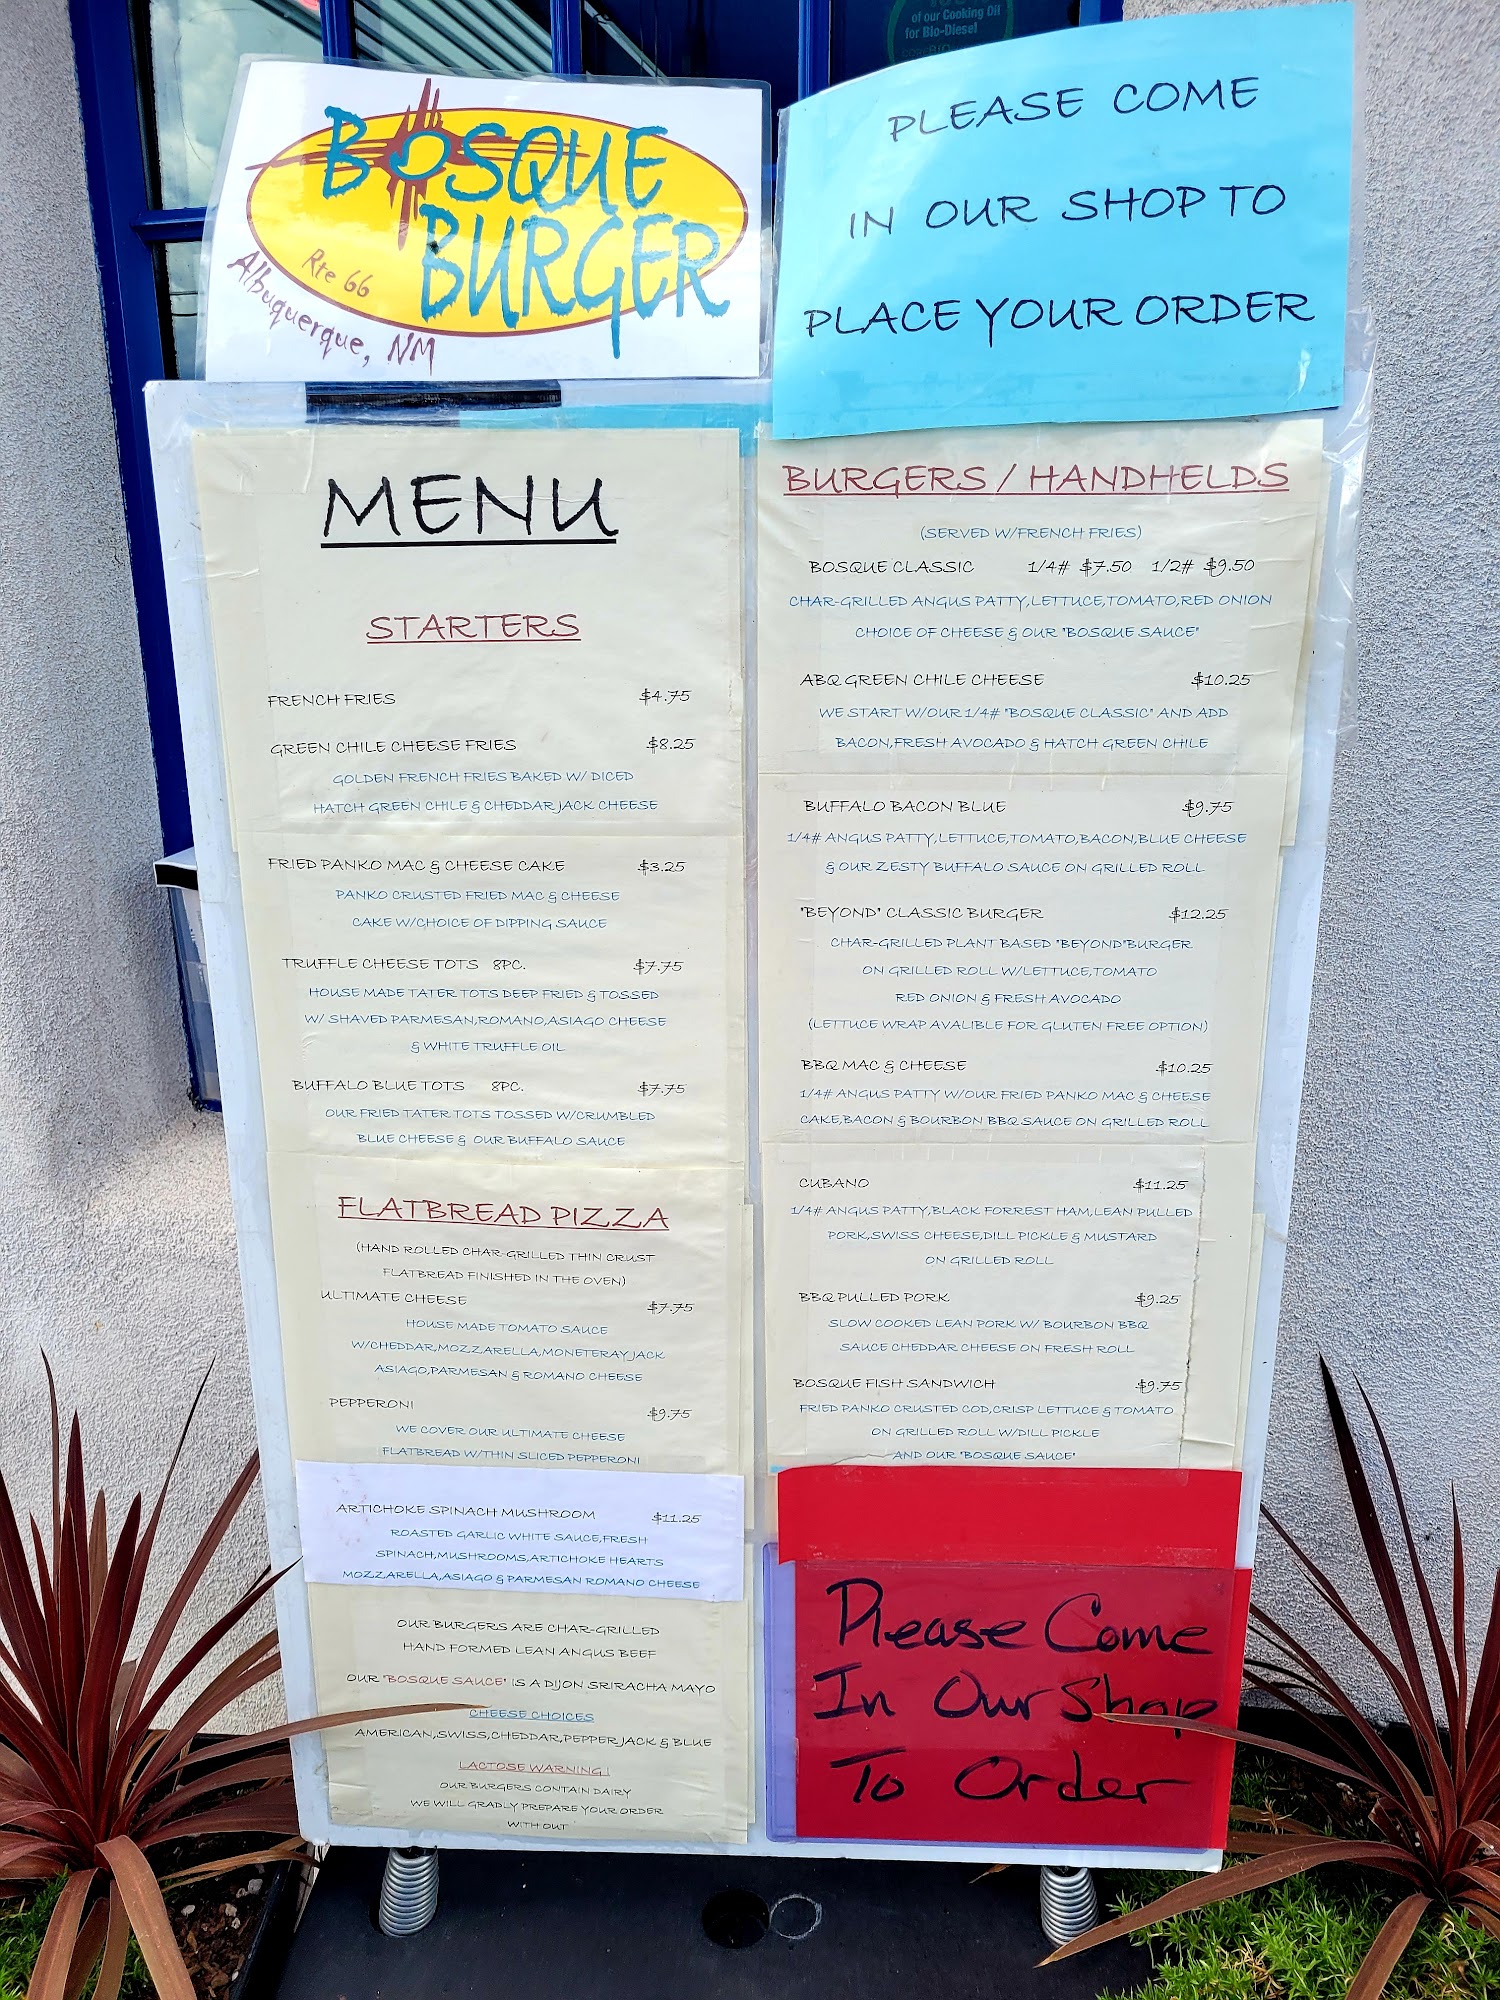 of our Cooking Oil
for Bio-Diesel
BOSQUE
BURGER
Rte 66
Albuquerque, NM
PLEASE COME
IN OUR SHOP TO
PLACE YOUR ORDER
MENU
STARTERS
FRENCH FRIES $4.75
GREEN CHILE CHEESE FRIES $8.25
GOLDEN FRENCH FRIES BAKED W/ DICED
HATCH GREEN CHILE & CHEDDAR JACK CHEESE
FRIED PANKO MAC & CHEESE CAKE $3.25
PANKO CRUSTED FRIED MAC & CHEESE
CAKE W/CHOICE OF DIPPING SAUCE
TRUFFLE CHEESE TOTS 8PC. $7.75
HOUSE MADE TATER TOTS DEEP FRIED & TOSSED
W/ SHAVED PARMESAN,ROMANO,ASIAGO CHEESE
& WHITE TRUFFLE OIL
BUFFALO BLUE TOTS 8PC. $7.75
OUR FRIED TATER TOTS TOSSED W/CRUMBLED
BLUE CHEESE & OUR BUFFALO SAUCE
FLATBREAD PIZZA
(HAND ROLLED CHAR-GRILLED THIN CRUST
FLATBREAD FINISHED IN THE OVEN)
ULTIMATE CHEESE $7.75
HOUSE MADE TOMATO SAUCE
W/CHEDDAR,MOZZARELLA,MONETERAY JACK
ASIAGO,PARMESAN & ROMANO CHEESE
PEPPERONI $9.75
WE COVER OUR ULTIMATE CHEESE
FLATBREAD W/THIN SLICED PEPPERONI
ARTICHOKE SPINACH MUSHROOM $11.25
ROASTED GARLIC WHITE SAUCE,FRESH
SPINACH,MUSHROOMS,ARTICHOKE HEARTS
MOZZARELLA,ASIAGO & PARMESAN ROMANO CHEESE
OUR BURGERS ARE CHAR-GRILLED
HAND FORMED LEAN ANGUS BEEF
OUR "BOSQUE SAUCE" IS A DIJON SRIRACHA MAYO
CHEESE CHOICES
AMERICAN,SWISS,CHEDDAR,PEPPER JACK & BLUE
LACTOSE WARNING!
OUR BURGERS CONTAIN DAIRY
WE WILL GRADLY PREPARE YOUR ORDER
WITH OUT
BURGERS / HANDHELDS
(SERVED W/FRENCH FRIES)
BOSQUE CLASSIC 1/4# $7.50 1/2# $9.50
CHAR-GRILLED ANGUS PATTY,LETTUCE,TOMATO,RED ONION
CHOICE OF CHEESE & OUR "BOSQUE SAUCE"
ABQ GREEN CHILE CHEESE $10.25
WE START W/OUR 1/4# "BOSQUE CLASSIC" AND ADD
BACON,FRESH AVOCADO & HATCH GREEN CHILE
BUFFALO BACON BLUE $9.75
1/4# ANGUS PATTY,LETTUCE,TOMATO,BACON,BLUE CHEESE
& OUR ZESTY BUFFALO SAUCE ON GRILLED ROLL
"BEYOND" CLASSIC BURGER $12.25
CHAR-GRILLED PLANT BASED "BEYOND"BURGER
ON GRILLED ROLL W/LETTUCE,TOMATO
RED ONION & FRESH AVOCADO
(LETTUCE WRAP AVALIBLE FOR GLUTEN FREE OPTION)
BBQ MAC & CHEESE $10.25
1/4# ANGUS PATTY W/OUR FRIED PANKO MAC & CHEESE
CAKE,BACON & BOURBON BBQ SAUCE ON GRILLED ROLL
CUBANO $11.25
1/4# ANGUS PATTY,BLACK FORREST HAM,LEAN PULLED
PORK,SWISS CHEESE,DILL PICKLE & MUSTARD
ON GRILLED ROLL
BBQ PULLED PORK $9.25
SLOW COOKED LEAN PORK W/ BOURBON BBQ
SAUCE CHEDDAR CHEESE ON FRESH ROLL
BOSQUE FISH SANDWICH $9.75
FRIED PANKO CRUSTED COD,CRISP LETTUCE & TOMATO
ON GRILLED ROLL W/DILL PICKLE
AND OUR "BOSQUE SAUCE"
Please Come
In Our Shop
To Order